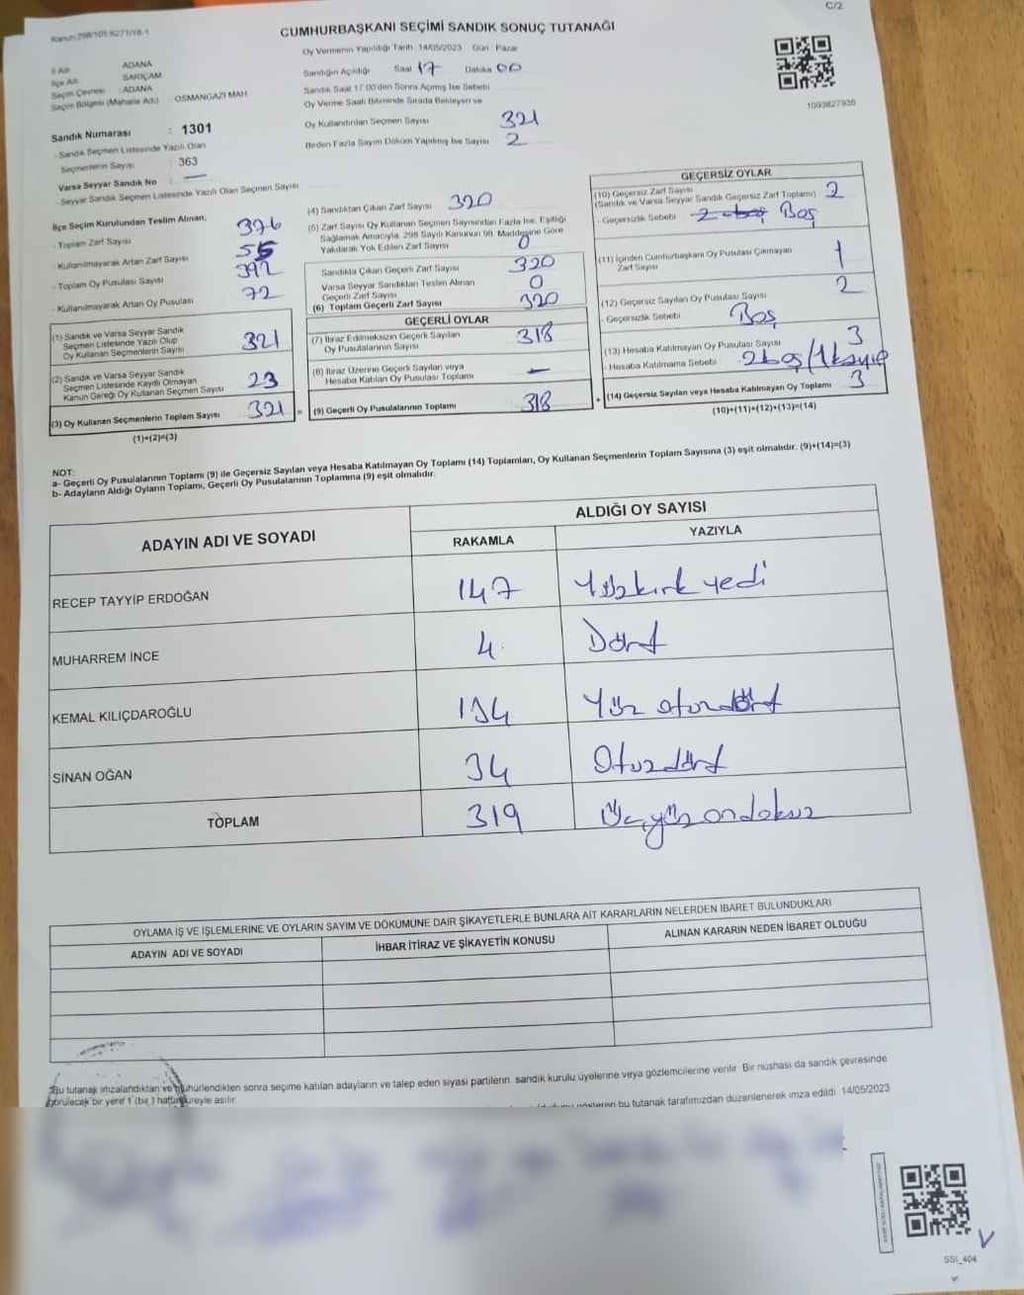 C/2
Kanun:298/101.6271/18-1
CUMHURBAŞKANI SEÇİMİ SANDIK SONUÇ TUTANAĞI
İl Adı ADANA
İlçe Adı SARIÇAM
Seçim Çevresi : ADANA
Seçim Bölgesi (Mahalle Adı) OSMANGAZI MAH
Sandık Numarası : 1301
- Sandık Seçmen Listesinde Yazılı Olan
Seçmenlerin Sayısı : 363
Varsa Seyyar Sandık No : —
- Seyyar Sandık Seçmen Listesinde Yazılı Olan Seçmen Sayısı
Oy Vermenin Yapıldığı Tarih 14/05/2023 Gün : Pazar
Sandığın Açıldığı Saat 17 Dakika 00
Sandık Saat 17.00'den Sonra Açılmış İse Sebebi
Oy Verme Saati Bitiminde Sırada Bekleyen ve
Oy Kullandırılan Seçmen Sayısı 321
Birden Fazla Sayım Döküm Yapılmış İse Sayısı 2
1093827936
İlçe Seçim Kurulundan Teslim Alınan;
- Toplam Zarf Sayısı 376
- Kullanılmayarak Artan Zarf Sayısı 55
- Toplam Oy Pusulası Sayısı 392
- Kullanılmayarak Artan Oy Pusulası 72
(1) Sandık ve Varsa Seyyar Sandık
Seçmen Listesinde Yazılı Olup
Oy Kullanan Seçmenlerin Sayısı 321
(2) Sandık ve Varsa Seyyar Sandık
Seçmen Listesinde Kayıtlı Olmayan
Kanun Gereği Oy Kullanan Seçmen Sayısı 23
(3) Oy Kullanan Seçmenlerin Toplam Sayısı 321 =
(1)+(2)=(3)
(4) Sandıktan Çıkan Zarf Sayısı 320
(5) Zarf Sayısı Oy Kullanan Seçmen Sayısından Fazla İse, Eşitliği
Sağlamak Amacıyla, 298 Sayılı Kanunun 98. Maddesine Göre
Yakılarak Yok Edilen Zarf Sayısı 0
Sandıkta Çıkan Geçerli Zarf Sayısı 320
Varsa Seyyar Sandıktan Teslim Alınan
Geçerli Zarf Sayısı 0
(6) Toplam Geçerli Zarf Sayısı 320
GEÇERLİ OYLAR
(7) İtiraz Edilmeksizin Geçerli Sayılan
Oy Pusulalarının Sayısı 318
(8) İtiraz Üzerine Geçerli Sayılan veya
Hesaba Katılan Oy Pusulası Toplamı —
(9) Geçerli Oy Pusulalarının Toplamı 318 +
GEÇERSİZ OYLAR
(10) Geçersiz Zarf Sayısı
(Sandık ve Varsa Seyyar Sandık Geçersiz Zarf Toplamı) 2
- Geçersizlik Sebebi 2 boş Boş
(11) İçinden Cumhurbaşkanı Oy Pusulası Çıkmayan
Zarf Sayısı 1
(12) Geçersiz Sayılan Oy Pusulası Sayısı 2
- Geçersizlik Sebebi Boş
(13) Hesaba Katılmayan Oy Pusulası Sayısı 3
- Hesaba Katılmama Sebebi 2 boş/1 kayıp
(14) Geçersiz Sayılan veya Hesaba Katılmayan Oy Toplamı 3
(10)+(11)+(12)+(13)=(14)
NOT:
a- Geçerli Oy Pusulalarının Toplamı (9) ile Geçersiz Sayılan veya Hesaba Katılmayan Oy Toplamı (14) Toplamları, Oy Kullanan Seçmenlerin Toplam Sayısına (3) eşit olmalıdır. (9)+(14)=(3)
b- Adayların Aldığı Oyların Toplamı, Geçerli Oy Pusulalarının Toplamına (9) eşit olmalıdır.
ADAYIN ADI VE SOYADI
ALDIĞI OY SAYISI
RAKAMLA YAZIYLA
RECEP TAYYİP ERDOĞAN 147 Yüzkırk yedi
MUHARREM İNCE 4. Dört
KEMAL KILIÇDAROĞLU 134 Yüz otuzdört
SİNAN OĞAN 34 Otuzdört
TOPLAM 319 Üçyüz ondokuz
OYLAMA İŞ VE İŞLEMLERİNE VE OYLARIN SAYIM VE DÖKÜMÜNE DAİR ŞİKAYETLERLE BUNLARA AİT KARARLARIN NELERDEN İBARET BULUNDUKLARI
ADAYIN ADI VE SOYADI İHBAR İTİRAZ VE ŞİKAYETİN KONUSU ALINAN KARARIN NEDEN İBARET OLDUĞU
Bu tutanak imzalandıktan ve mühürlendikten sonra seçime katılan adayların ve talep eden siyasi partilerin sandık kurulu üyelerine veya gözlemcilerine verilir. Bir nüshası da sandık çevresinde
görülecek bir yere 1 (bir) hafta süreyle asılır.
gösteren bu tutanak tarafımızdan düzenlenerek imza edildi. 14/05/2023
SSI_404